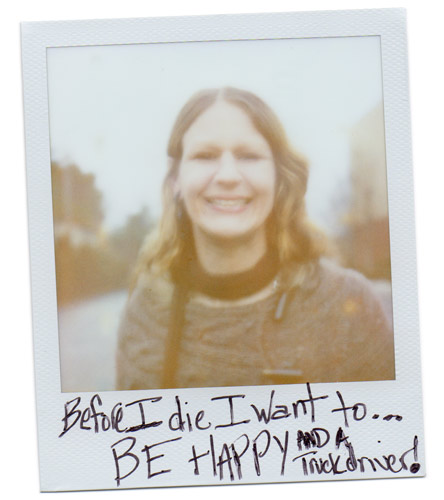 Before I die I want to...
BE HAPPY AND A
Truckdriver!